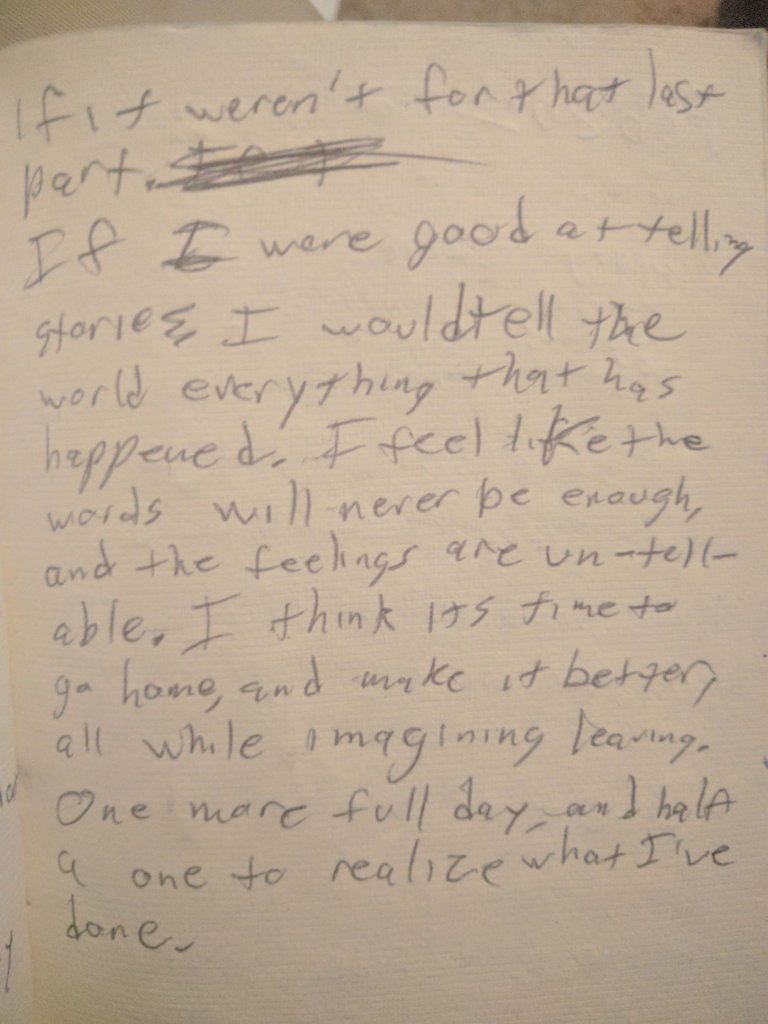 If it weren't for that last
part.
If I were good at telling
stories I would tell the
world everything that has
happened. I feel like the
words will never be enough,
and the feelings are un-tell-
able. I think its time to
go home, and make it better,
all while imagining leaving.
One more full day, and half
a one to realize what I've
done.